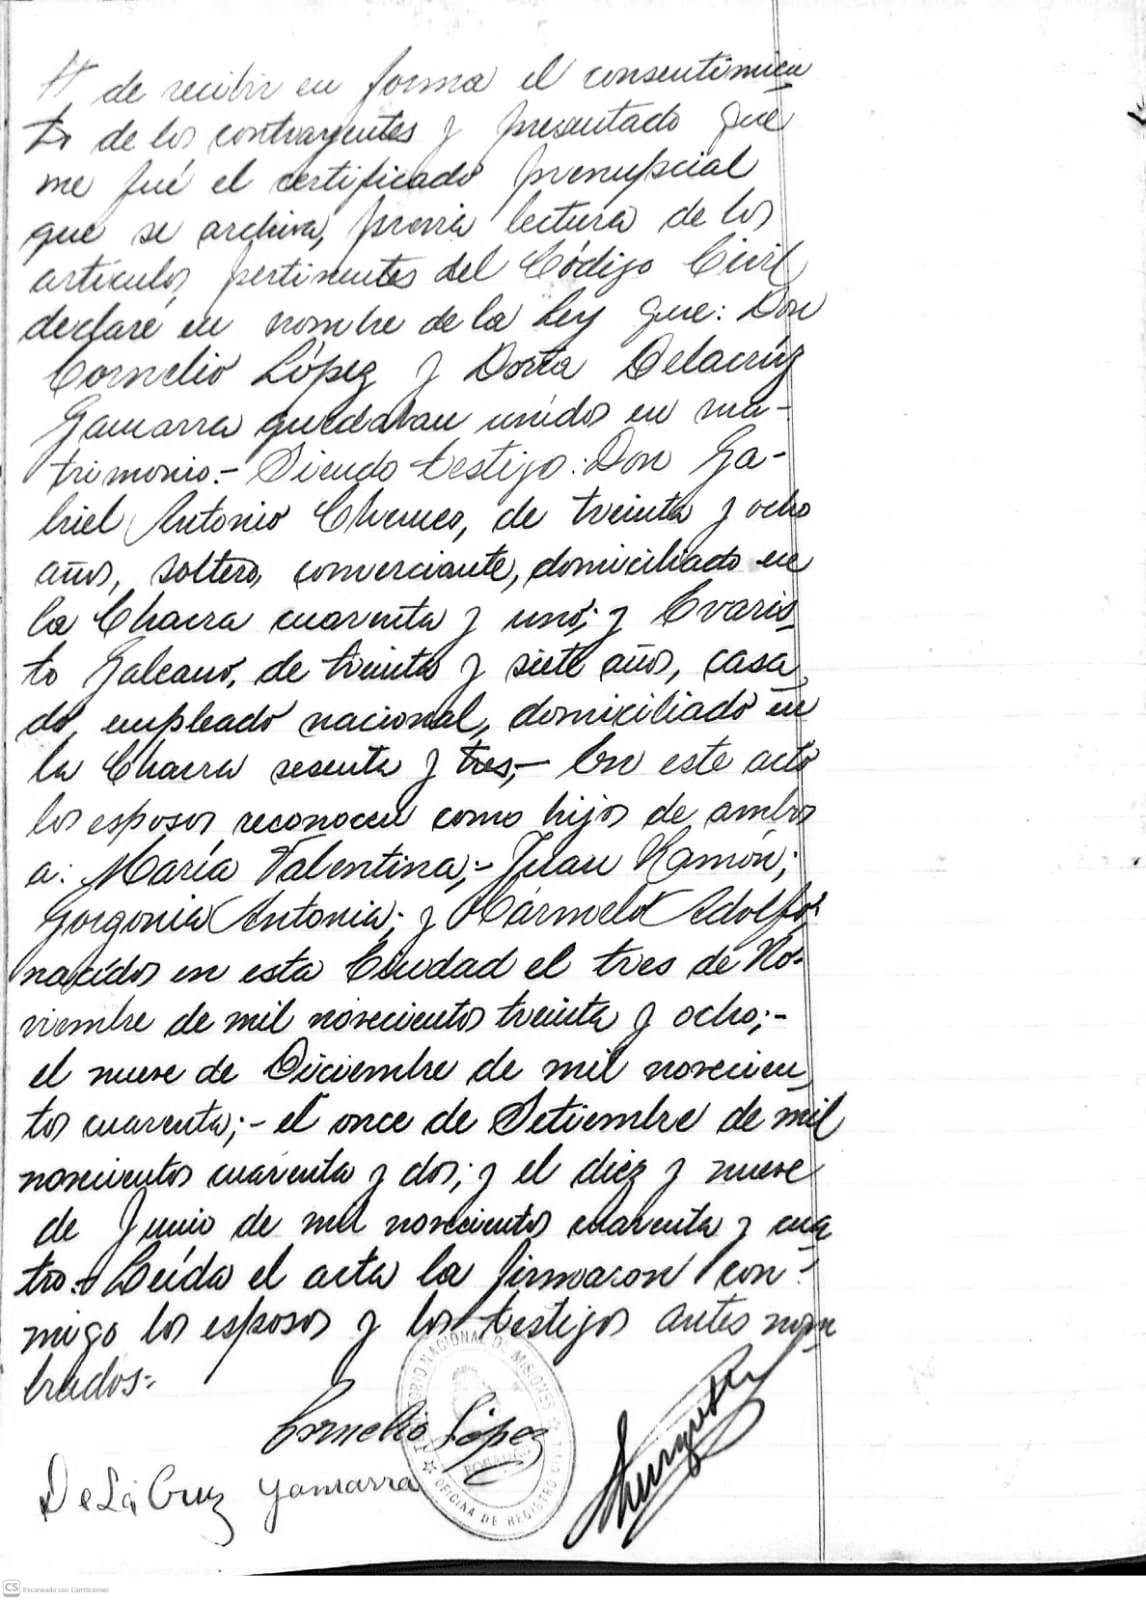 de recibir en forma el consentimien
to de los contrayentes y presentado que
me fué el certificado prenupscial
que se archiva, previa lectura de los
artículos pertinentes del Código Civil,
declaré en nombre de la Ley que: Don
Cornelio López y Doña Delacruz
Gamarra quedaban unidos en ma-
trimonio.- Siendo testigo: Don Ga-
briel Antonio Chemes, de treinta y ocho
años, soltero, comerciante, domiciliado en
la Chacra cuarenta y uno; y Evaris
to Galeano, de treinta y siete años, casa
do, empleado nacional, domiciliado en
la Chacra sesenta y tres;- En este acto
los esposos reconocen como hijos de ambos
a: María Valentina;- Juan Ramón;
Gorgonia Antonia; y Cármelo Adolfo;
nacidos en esta Ciudad el tres de No-
viembre de mil novecientos treinta y ocho;-
el nueve de Diciembre de mil novecien
tos cuarenta;- el once de Setiembre de mil
novecientos cuarenta y dos; y el diez y nueve
de Junio de mil novecientos cuarenta y cua
tro.- Leída el acta la firmaron con-
migo los esposos y los testigos antes nom
brados.-
TERRITORIO NACIONAL DE MISIONES
Cornelio López
POSADAS
De La Cruz Gamarra
OFICINA DE REGISTRO CIVIL
CS Escaneado con CamScanner